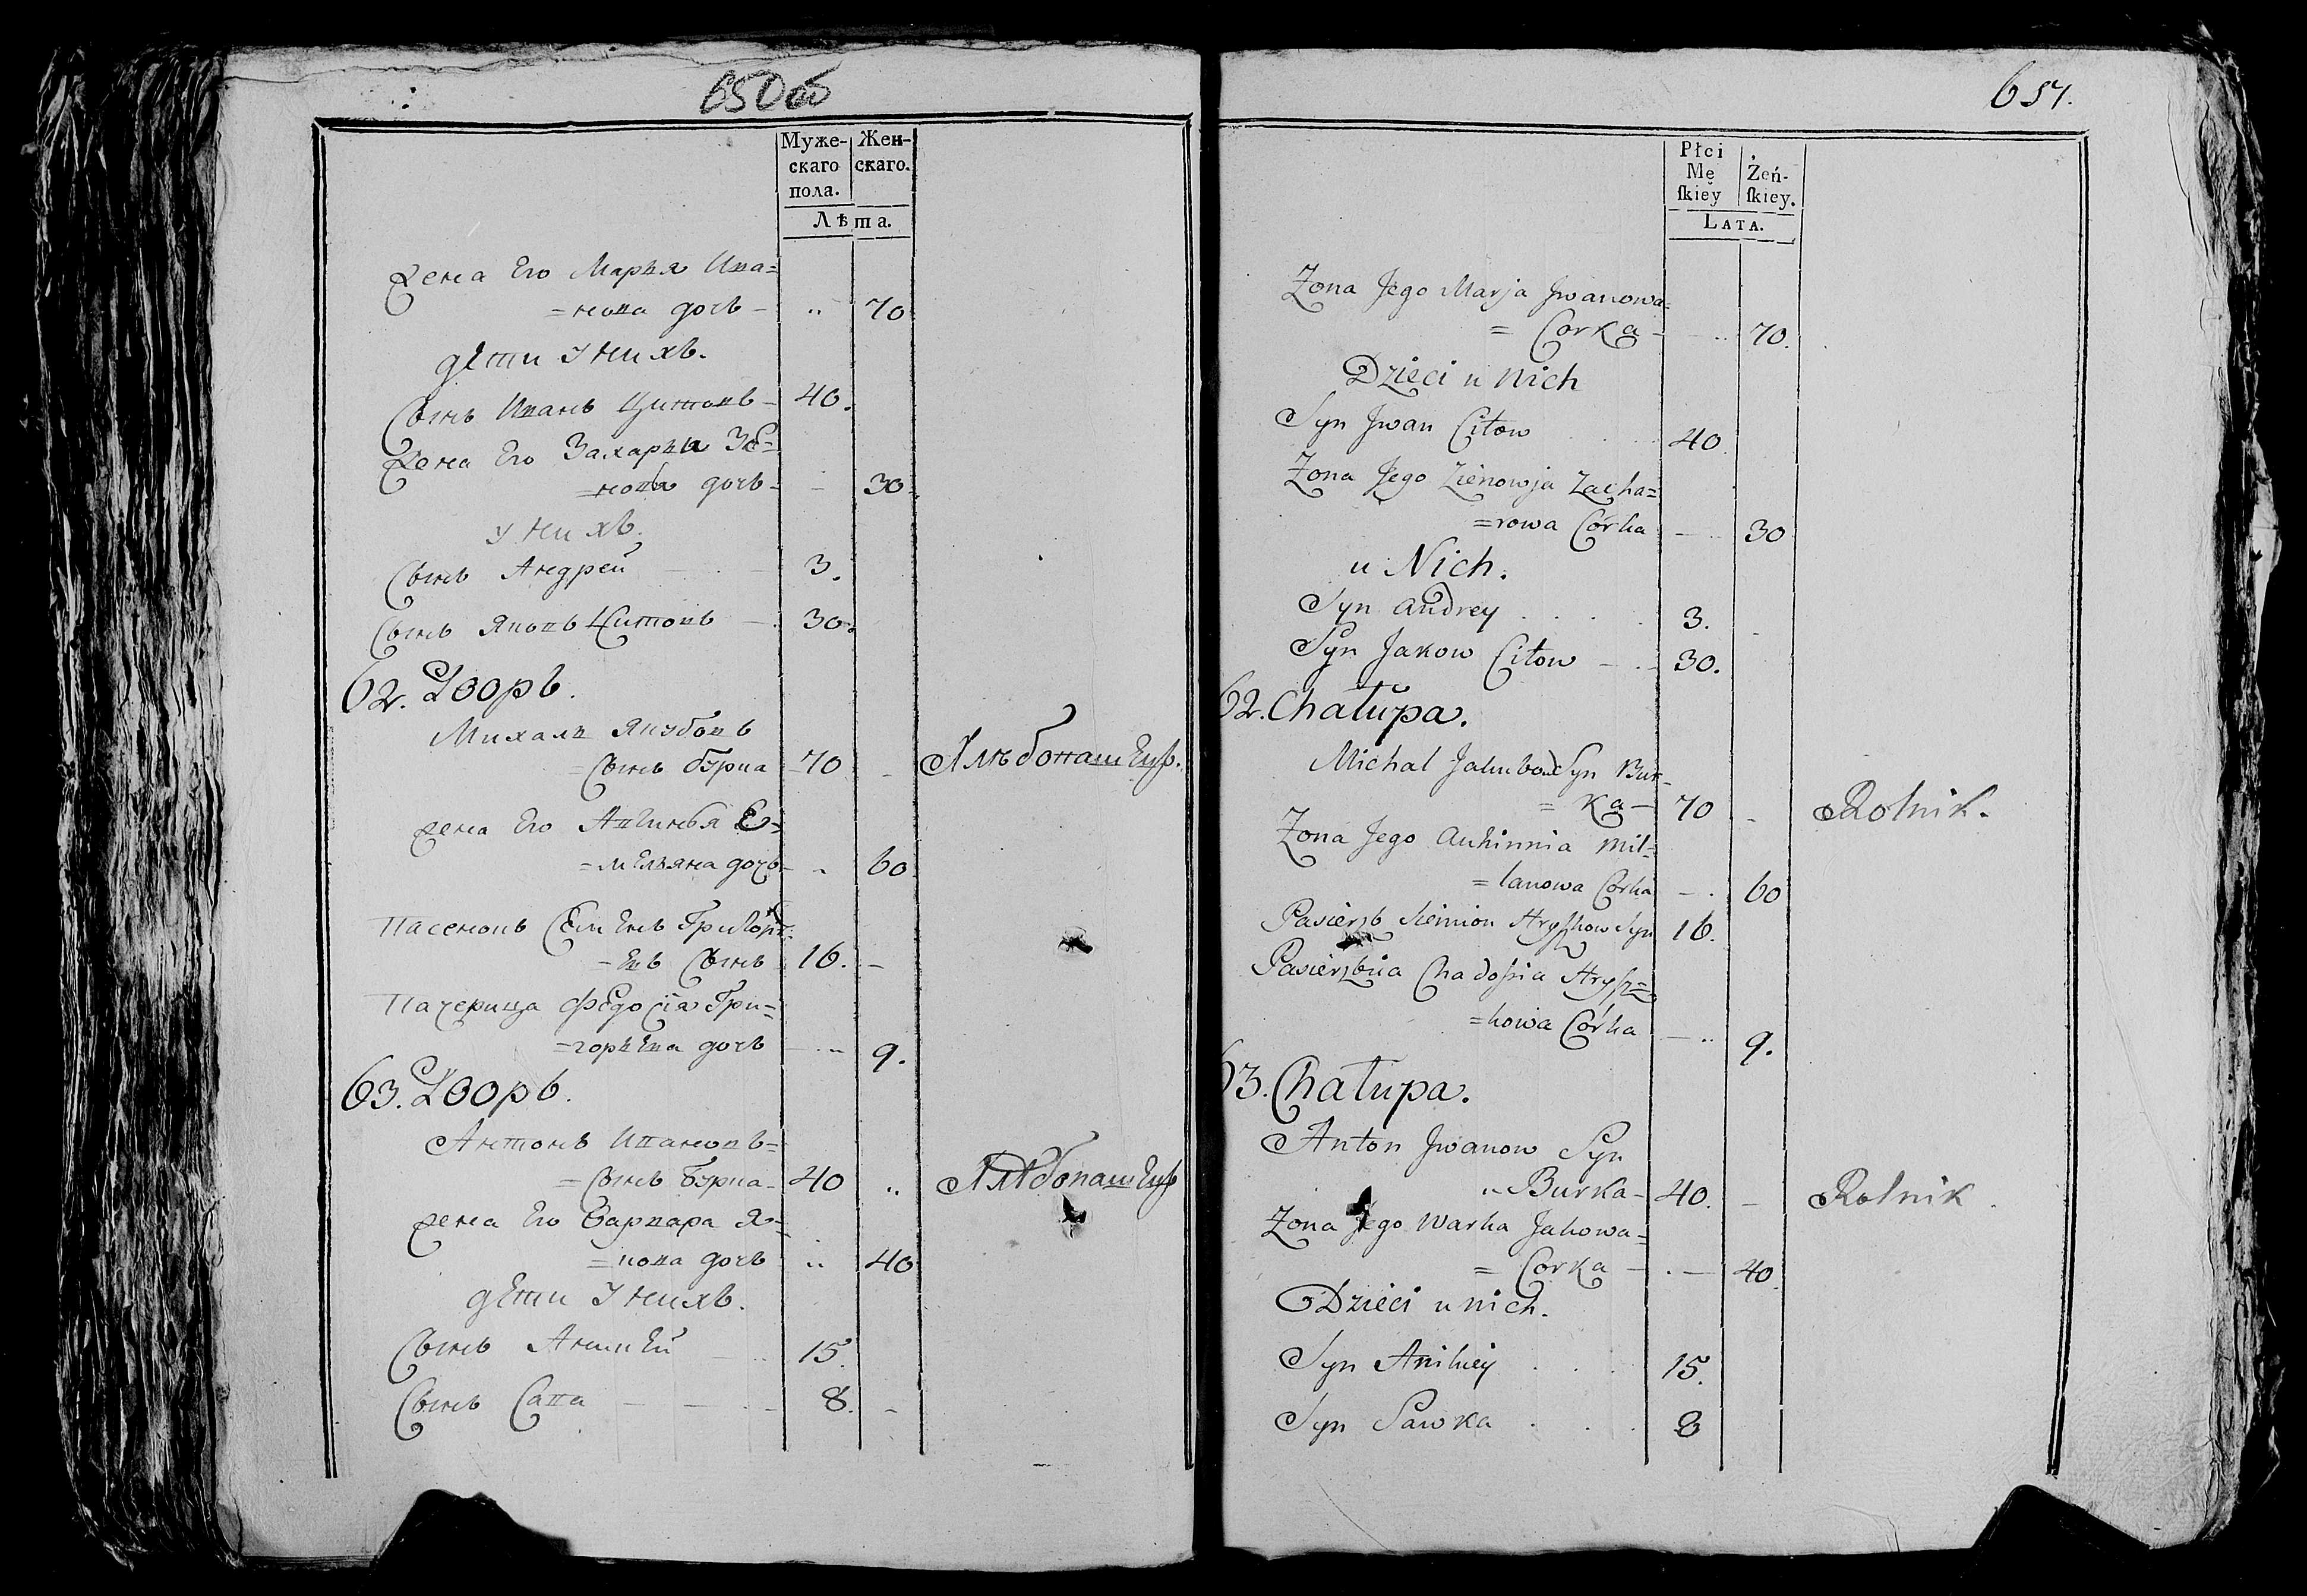 650 об
Муже-
скаго
пола.
Жен-
скаго.
Лѣта.
Жена Его Марья Ива=
=нова дочь - " 70
дети У нихъ.
Сынъ Иванъ Цитовъ - 40.
Жена Его Захарьи Зе=
=нова дочь - - 30.
У нихъ.
Сынъ Андрей 3.
Сынъ Яковъ Цитовъ - 30.
62. Дворъ.
Михаля Якубовъ
=Сынъ Бурка 70 - Хлѣбопашецъ.
Жена Его Авгинья Е=
=мельяна дочь - " 60
Пасенокъ Семенъ Григорь=
=евъ Сынъ 16. -
Пачерица Федосія Гри=
=горьева дочь - " 9.
63. Дворъ.
Антонъ Ивановъ=
=Сынъ Бурка - 40 " Хлѣбопашецъ
Жена Его Варвара Я=
=кова дочь " 40
дети У нихъ.
Сынъ Аникей 15.
Сынъ Сава - - - 8. -
651.
Płci
Mę
ſkiey
Żeń-
ſkiey.
LATA.
Zona Jego Marja Jwanowa=
= Corka - " 70.
Dzieci u nich
Syn Jwan Citow 40.
Zona Jego Zienowja Zacha=
=rowa Córka - " 30
u Nich.
Syn Andrey . . . . 3.
Syn Jakow Citow - . - 30.
62. Chałupa.
Michal Jakubow Syn Bur=
= ka - 70 - Rolnik.
Zona Jego Auhinnia Mil=
=lanowa Corka - . 60
Pasierzb Siemion Hryszkow Syn 16.
Pasierzbica Chadosia Hrysz=
=kowa Córka - " 9.
63. Chałupa.
Anton Jwanow Syn
" Burka - 40. - Rolnik.
Zona Jego Warka Jakowa=
= Corka - . - 40
Dzieci u nich.
Syn Anikiey . . . 15.
Syn Sawka . . . 8